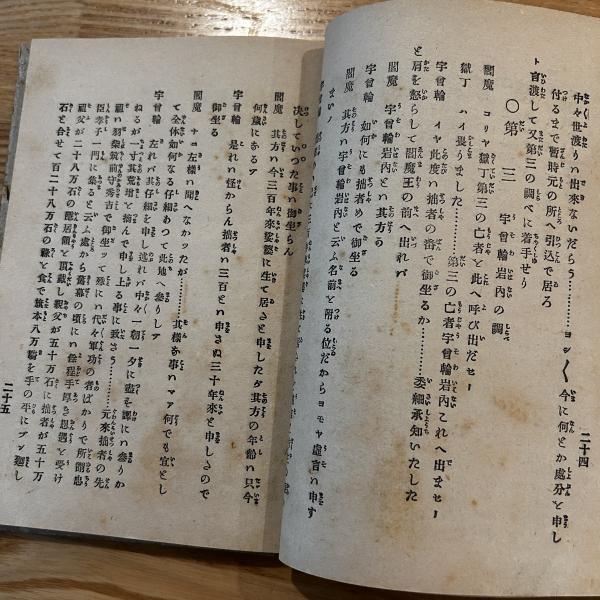 二十四
中々世渡りハ出來ないだらう………ヨシ〱今に何とか處分と申し
付るまで暫時元の所へ引込で居ろ
ト言渡して又第三の調べに着手せり
〇第三 宇曾輪岩內の調
閻魔 コリヤ獄丁第三の亡者と此へ呼び出だせー
獄丁 ハイ畏りました………第三の亡者宇曾輪岩內これへ出ませー
宇曾輪 イヤ此度ハ拙者の番で御坐るか……委細承知いたした
と肩を怒らして閻魔王の前へ出れバ
閻魔 其方ハ宇曾輪岩內と云ふ
宇曾輪 如何にも拙者めで御坐る
閻魔 其方ハ宇曾輪岩內と云ふ名前と附る位だからヨモヤ虛言ハ申す
まいノ
宇曾輪
決していつた事ハ御坐らん
閻魔 其方ハ今三百年來娑婆に生て居さと申したダ其方の年齡ハ只今
何歲にあるア
宇曾輪 是れハ怪からん拙者ハ三百とハ申さぬ三十年來と申しさので
御坐る
閻魔 ナニ左樣ハ聞へなかつたが……其樣な事ハマア何でも宜とし
て全体如何なる仔細あつて此地へ參りしア
宇曾輪 左れバ其仔細を申し述れバ中々一朝一夕に盡を譯にハ參りか
ねるが一寸其荒增と摘んで申し上る事に致さう………元來拙者の先
祖ハ羽柴筑前守秀吉で御坐ツて殊にハ代々軍功の者ばかりで所謂忠
臣孝子一門に集ると云ふ處から舊幕の頃にハ餘程手厚き恩遇と受け
祖父が二十八万石の隱居領と頂戴し親父が五十万石に拙者が五十万
石と合せて百二十八万石の祿と食で旗本八万騎を手の平にブン廻し
二十五